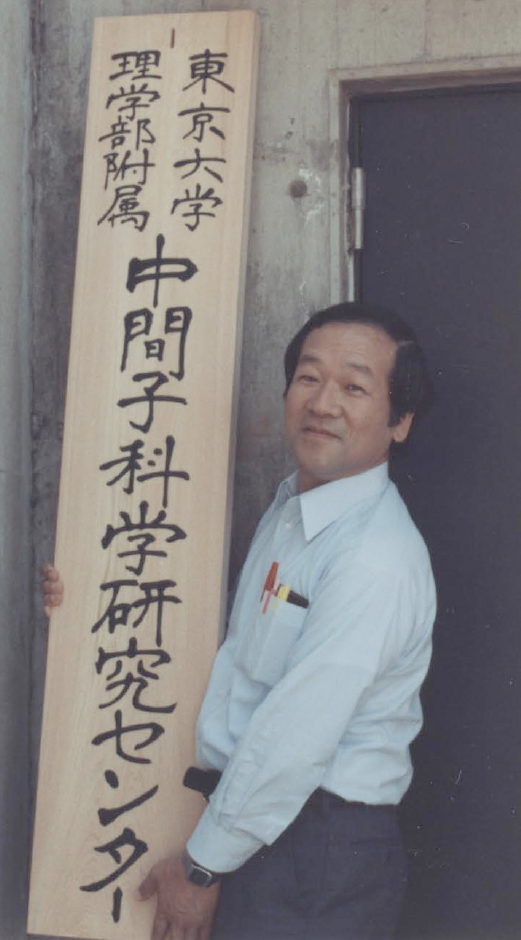 東京大学
理学部附属
中間子科学研究センター